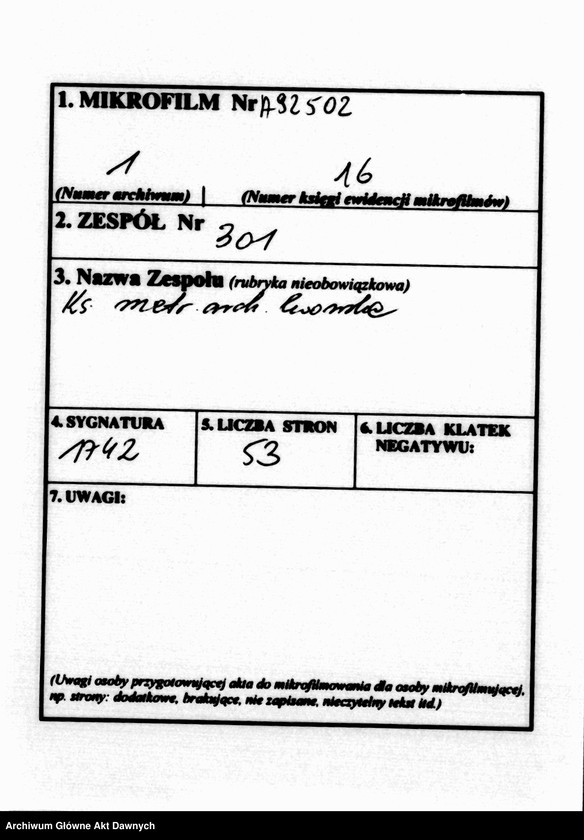 1. MIKROFILM Nr A92502
1 16
(Numer archiwum) | (Numer księgi ewidencji mikrofilmów)
2. ZESPÓŁ Nr 301
3. Nazwa Zespołu (rubryka nieobowiązkowa)
Ks. metr. arch. lwowska
4. SYGNATURA 5. LICZBA STRON 6. LICZBA KLATEK
NEGATYWU:
1742 53
7. UWAGI:
(Uwagi osoby przygotowującej akta do mikrofilmowania dla osoby mikrofilmującej,
np. strony: dodatkowe, brakujące, nie zapisane, nieczytelny tekst itd.)
Archiwum Główne Akt Dawnych